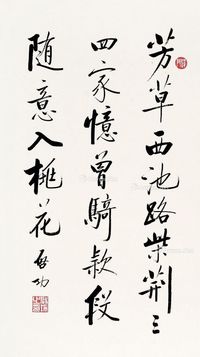 芳草西池路柴荆三
四家憶曾騎款段
随意入桃花 启功